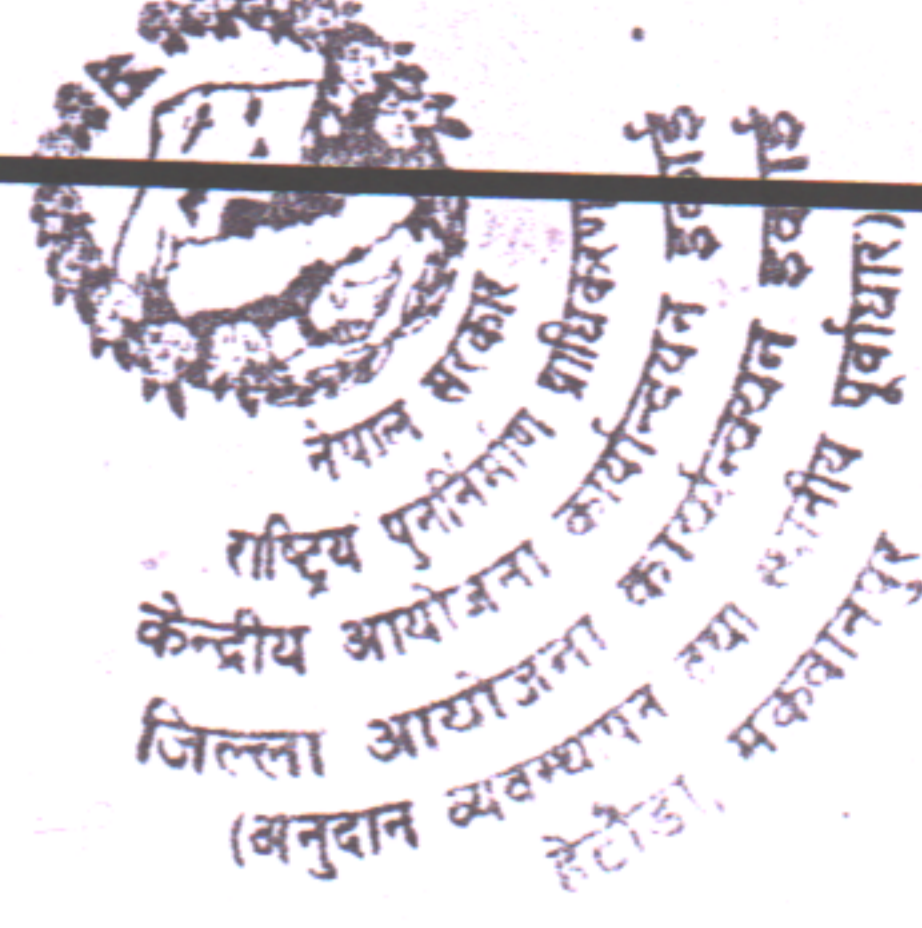 नेपाल सरकार
राष्ट्रिय पुनर्निर्माण प्राधिकरण
केन्द्रीय आयोजना कार्यान्वयन इकाई
जिल्ला आयोजना कार्यान्वयन इकाई
(अनुदान व्यवस्थापन तथा स्थानीय पूर्वाधार)
हेटौडा, मकवानपुर